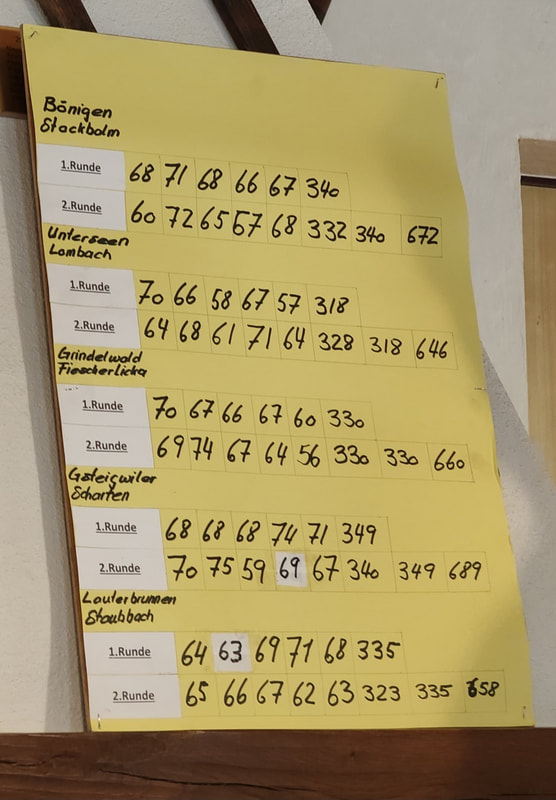 Bönigen
Stockbolm
1.Runde 68 71 68 66 67 340
2.Runde 60 72 65 67 68 332 340 672
Unterseen
Lombach
1.Runde 70 66 58 67 57 318
2.Runde 64 68 61 71 64 328 318 646
Grindelwald
Fiescherlicka
1.Runde 70 67 66 67 60 330
2.Runde 69 74 67 64 56 330 330 660
Gsteigwiler
Scharten
1.Runde 68 68 68 74 71 349
2.Runde 70 75 59 69 67 340 349 689
Lauterbrunnen
Staubbach
1.Runde 64 63 69 71 68 335
2.Runde 65 66 67 62 63 323 335 658